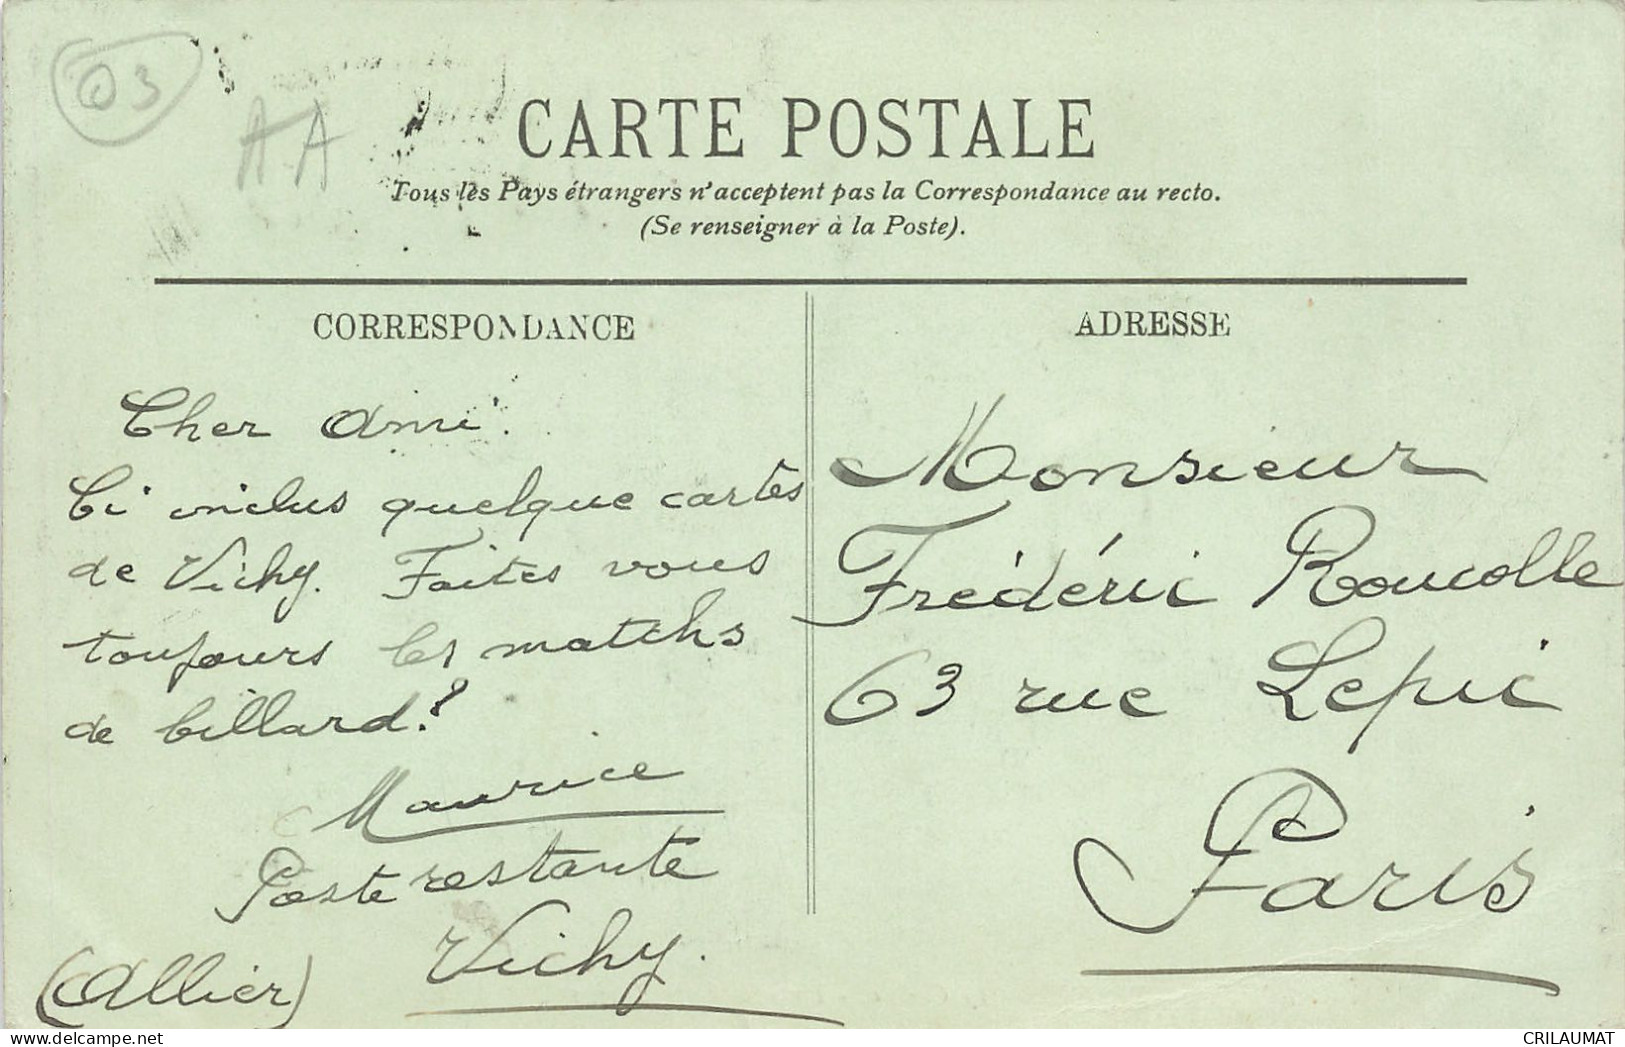 03
AA
CARTE POSTALE
Tous les Pays étrangers n'acceptent pas la Correspondance au recto.
(Se renseigner à la Poste).
CORRESPONDANCE
Cher Ami.
Ci inclus quelque cartes
de Vichy. Faites vous
toujours les matchs
de billard?
Maurice
Poste restante
Vichy.
(Allier)
ADRESSE
Monsieur
Frédéric Roucolle
63 rue Lepic
Paris
CRILAUMAT